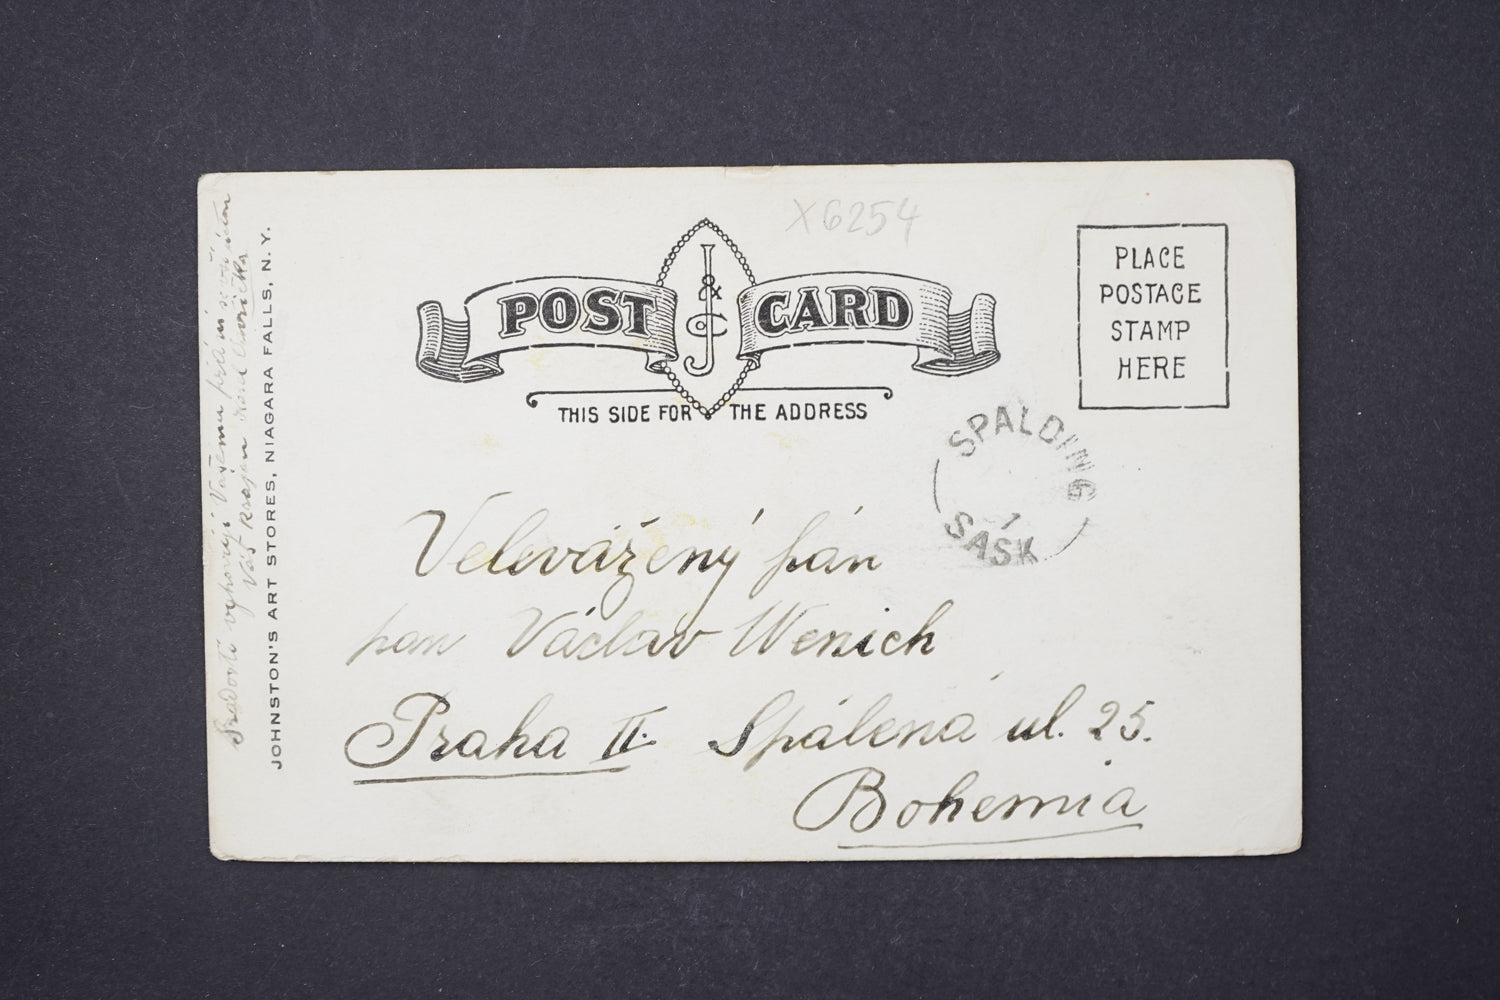 X6254
POST J & Co CARD
THIS SIDE FOR THE ADDRESS
PLACE
POSTAGE
STAMP
HERE
SPALDING
1
SASK
Velevážený pán
pan Václav Wenich
Praha II. Spálená ul. 25.
Bohemia
JOHNSTON'S ART STORES, NIAGARA FALLS, N. Y.
S radostí vyhověji Vašemu přání
Váš krajan Karel